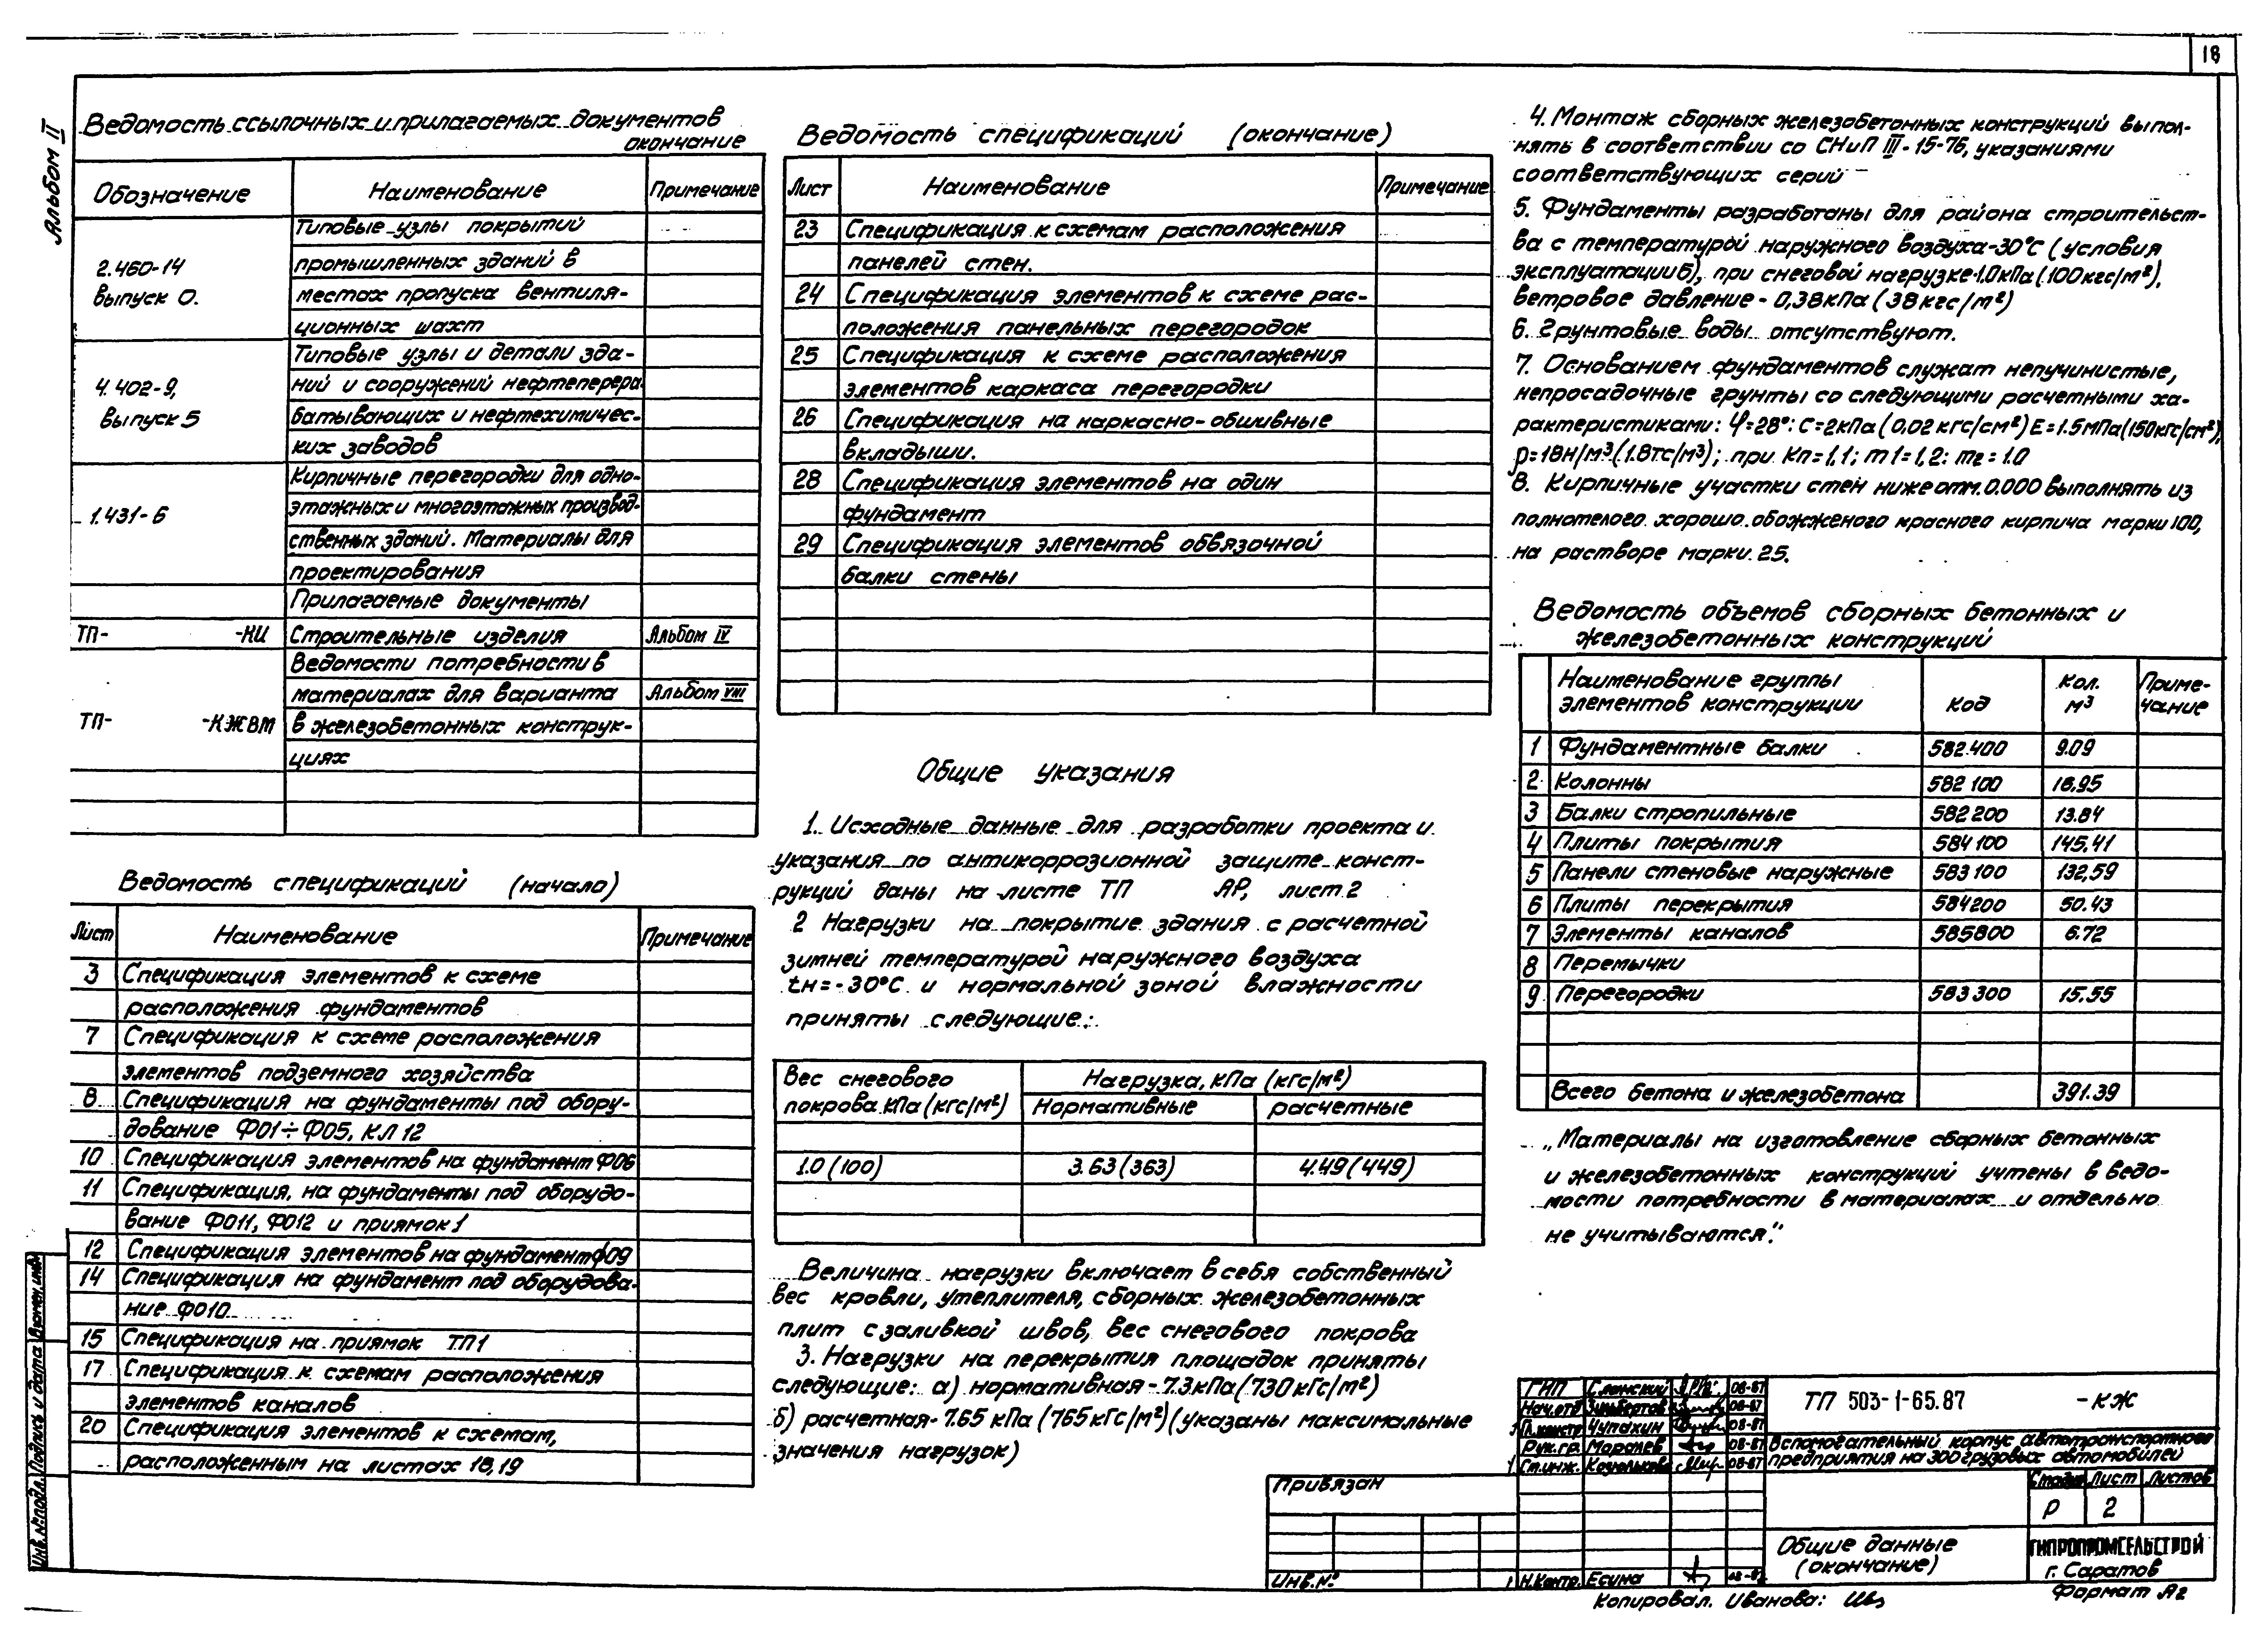 18
Альбом II
Ведомость ссылочных и прилагаемых документов
окончание
Обозначение Наименование Примечание
2.460-14
выпуск 0.
Типовые узлы покрытий
промышленных зданий в
местах пропуска вентиля-
ционных шахт
4.402-9,
выпуск 5
Типовые узлы и детали зда-
ний и сооружений нефтеперера
батывающих и нефтехимичес-
ких заводов
1.431-6
Кирпичные перегородки для одно-
этажных и многоэтажных производ-
ственных зданий. Материалы для
проектирования
Прилагаемые документы
ТП- -КИ Строительные изделия Альбом IV
ТП- -КЖВМ
Ведомости потребности в
материалах для варианта Альбом VIII
в железобетонных конструк-
циях
Ведомость спецификаций (начало)
Лист Наименование Примечание
3 Спецификация элементов к схеме
расположения фундаментов
7 Спецификация к схеме расположения
элементов подземного хозяйства
8 Спецификация на фундаменты под обору-
дование Ф01÷Ф05, КЛ 12
10 Спецификация элементов на фундамент Ф06
11 Спецификация, на фундаменты под оборудо-
вание Ф011, Ф012 и приямок 1
12 Спецификация элементов на фундамент Ф09
14 Спецификация на фундамент под оборудова-
ние Ф010
15 Спецификация на приямок ТП1
17 Спецификация к схемам расположения
элементов каналов
20 Спецификация элементов к схемам,
расположенным на листах 18,19
Ведомость спецификаций (окончание)
Лист Наименование Примечание
23 Спецификация к схемам расположения
панелей стен.
24 Спецификация элементов к схеме рас-
положения панельных перегородок
25 Спецификация к схеме расположения
элементов каркаса перегородки
26 Спецификация на каркасно-обшивные
вкладыши.
28 Спецификация элементов на один
фундамент
29 Спецификация элементов обвязочной
балки стены
Общие указания
1. Исходные данные для разработки проекта и
указания по антикоррозионной защите конст-
рукций даны на листе ТП АР, лист 2
2 Нагрузки на покрытие здания с расчетной
зимней температурой наружного воздуха
tн=-30°С и нормальной зоной влажности
приняты следующие:
Вес снегового
покрова кПа (кгс/м²)
Нагрузка, кПа (кгс/м²)
Нормативные расчетные
1.0 (100) 3.63 (363) 4.49 (449)
Величина нагрузки включает в себя собственный
вес кровли, утеплителя, сборных железобетонных
плит с заливкой швов, вес снегового покрова
3. Нагрузки на перекрытия площадок приняты
следующие: а) нормативная - 7.3 кПа (730 кГс/м²)
б) расчетная - 7.65 кПа (765 кГс/м²) (указаны максимальные
значения нагрузок)
4. Монтаж сборных железобетонных конструкций выпол-
нять в соответствии со СНиП III-15-76, указаниями
соответствующих серий
5. Фундаменты разработаны для района строительст-
ва с температурой наружного воздуха -30°С (условия
эксплуатации Б), при снеговой нагрузке -1.0 кПа (100 кгс/м²),
ветровое давление - 0,38 кПа (38 кгс/м²)
6. Грунтовые воды отсутствуют.
7. Основанием фундаментов служат непучинистые,
непросадочные грунты со следующими расчетными ха-
рактеристиками: φ=28°: С=2кПа (0.02 кгс/см²) Е=1.5МПа (150кгс/см²),
ρ=18Н/м³ (1.8тс/м³); при Кп=1.1; m1=1,2: m2=1.0
8. Кирпичные участки стен ниже отм. 0.000 выполнять из
полнотелого хорошо обожженого красного кирпича марки 100,
на растворе марки 25.
Ведомость объемов сборных бетонных и
железобетонных конструкций
Наименование группы
элементов конструкции
Код
Кол.
м³
Приме-
чание
1 Фундаментные балки 582.400 9.09
2 Колонны 582 100 16.95
3 Балки стропильные 582 200 13.84
4 Плиты покрытия 584 100 145,41
5 Панели стеновые наружные 583 100 132,59
6 Плиты перекрытия 584200 50.43
7 Элементы каналов 585800 6.72
8 Перемычки
9 Перегородки 583 300 15.55
Всего бетона и железобетона 391.39
„Материалы на изготовление сборных бетонных
и железобетонных конструкций учтены в ведо-
мости потребности в материалах и отдельно
не учитываются."
ГИП Слонский 08-87
Нач.отд 08-87
Гл.констр Чупахин 08-87
Рук.гр. Моролев 08-87
Ст.инж. 08-87
Н.Контр. Есина
ТП 503-1-65.87 -КЖ
Вспомогательный корпус автотранспортного
предприятия на 300 грузовых автомобилей
Стадия Лист Листов
Р 2
Общие данные
(окончание)
ГИПРОПРОМСЕЛЬСТРОЙ
г. Саратов
Привязан
Инв.№
Копировал. Иванова:
Формат А2
Инв.№подл. Подпись и дата Взамен.инв.№